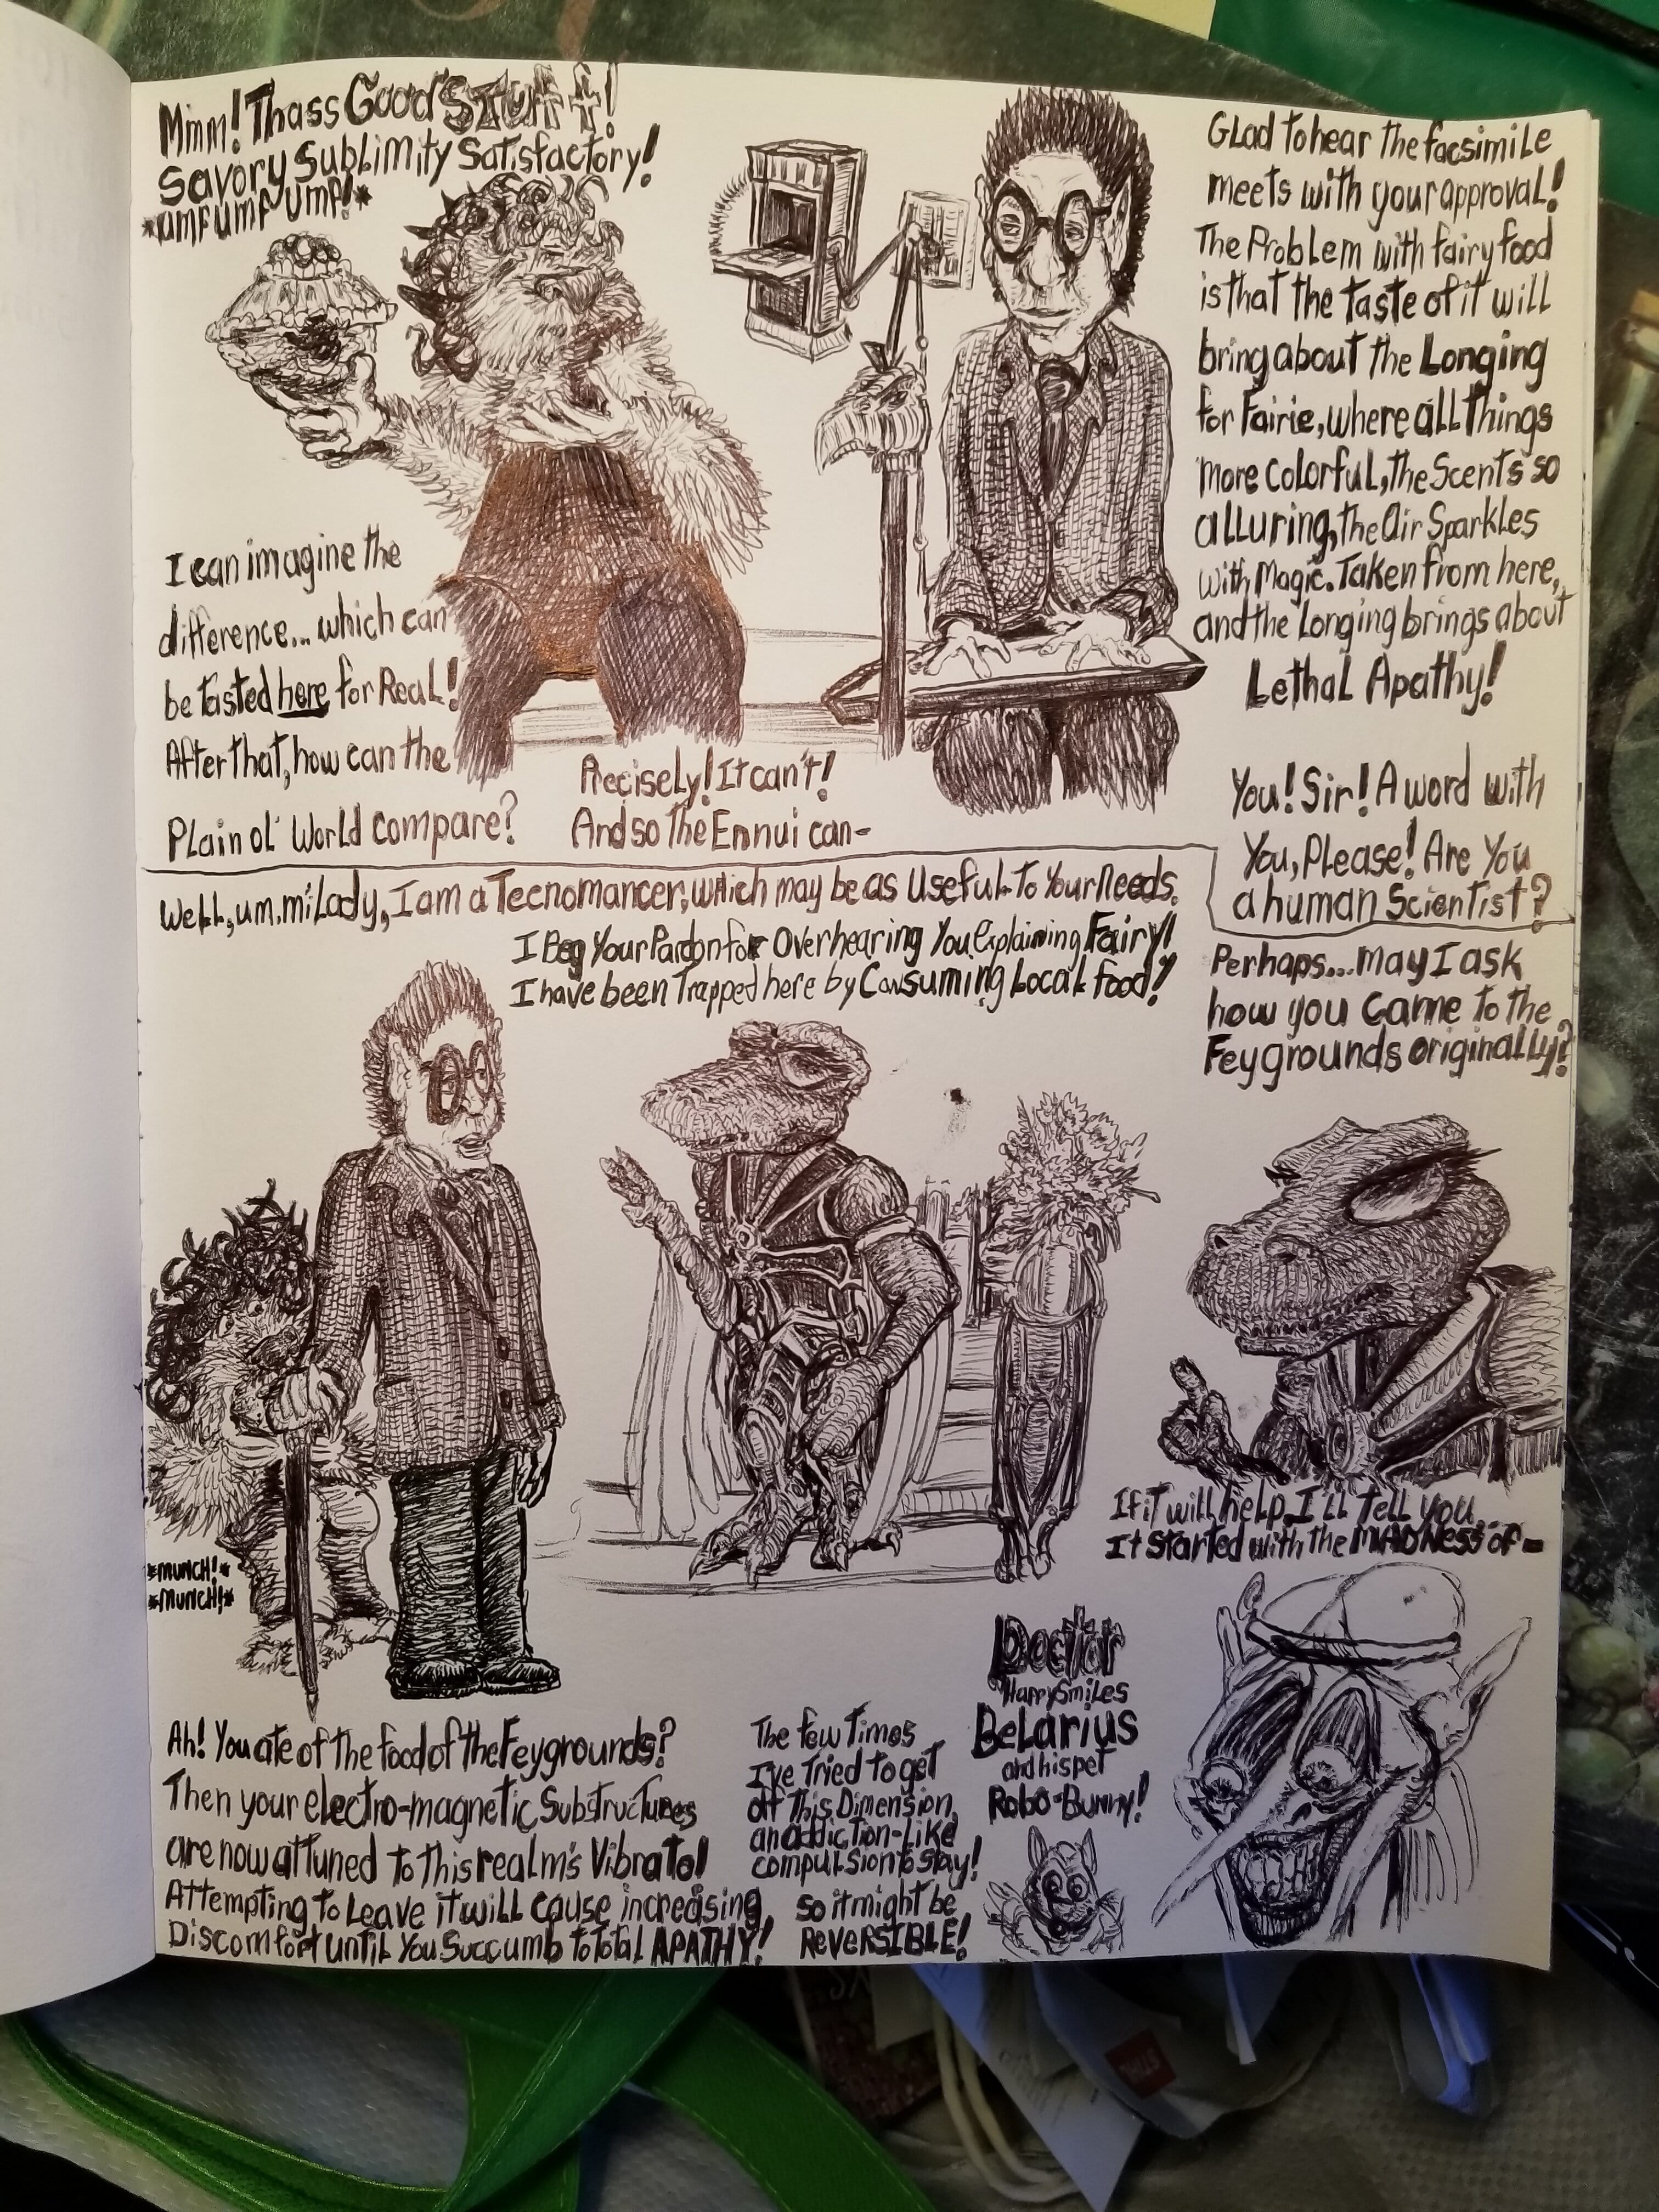 Mmm! Thass Good Stuff!
Savory Sublimity Satisfactory!
*umf umf umf!*
Glad to hear the facsimile
meets with your approval!
The Problem with fairy food
is that the taste of it will
bring about the Longing
for Fairie, where all Things
more colorful, the Scents so
alluring, the air Sparkles
with Magic. Taken from here,
and the Longing brings about
Lethal Apathy!
I can imagine the
difference... which can
be tasted here for Real!
After that, how can the
Plain ol' World compare?
Precisely! It can't!
And so the Ennui can-
You! Sir! A word with
You, Please! Are You
a human Scientist?
Well, um, mi'Lady, I am a Tecnomancer, which may be as Useful To Your Needs.
I Beg Your Pardon for Overhearing You Explaining Fairy!
I have been Trapped here by Consuming Local food!
Perhaps... may I ask
how you came to the
Feygrounds originally?
*MUNCH!*
*MUNCH!*
If it will help, I'll tell you...
It started with the MADNess of -
Doctor
Happy Smiles
Belarius
and his pet
Robo-Bunny!
Ah! You ate of the food of the Feygrounds?
Then your electro-magnetic Substructures
are now attuned to this realm's Vibrato!
Attempting to Leave it will cause increasing
Discomfort until You Succumb to Total APATHY!
The few Times
I've Tried to get
off This Dimension,
an addiction-like
compulsion to stay!
so it might be
REVERSIBLE!
STIHL